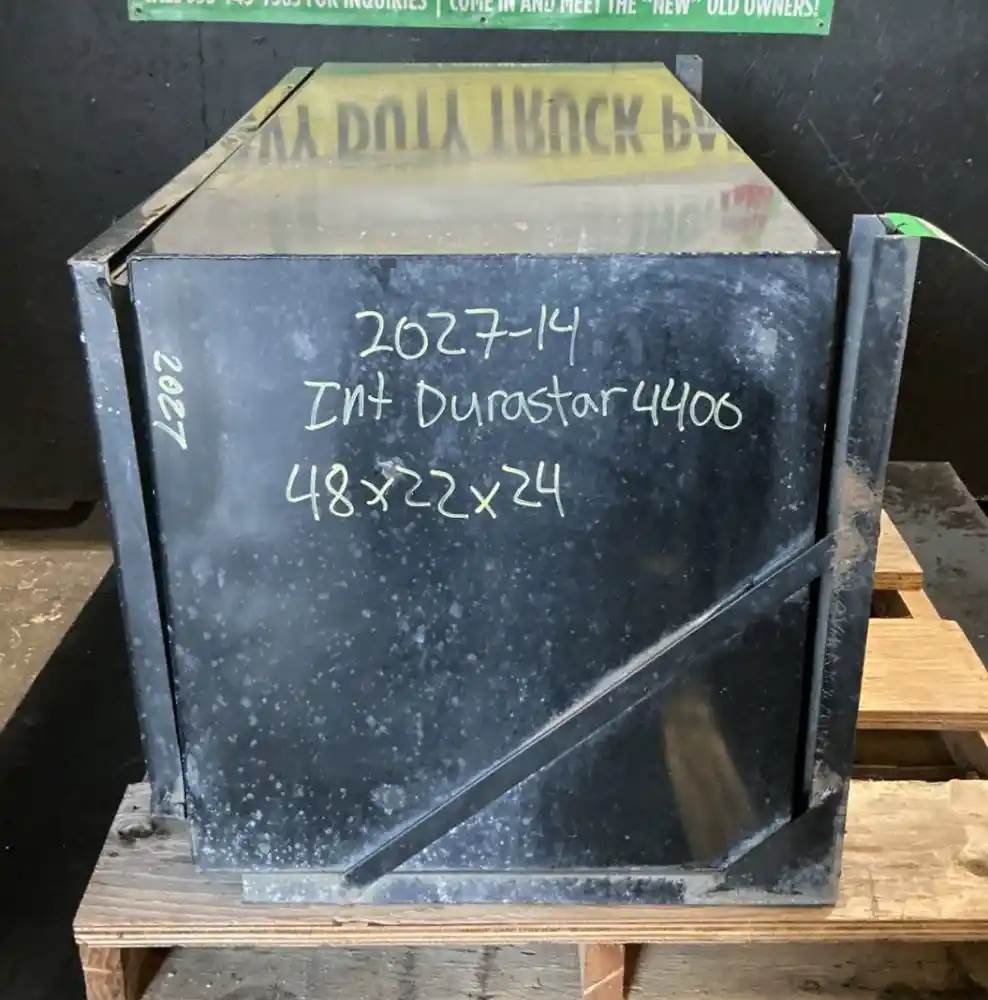 FOR INQUIRIES | COME IN AND MEET THE "NEW" OLD OWNERS!
DUTY TRUCK
2027-14
Int Durastar 4400
48x22x24
2027